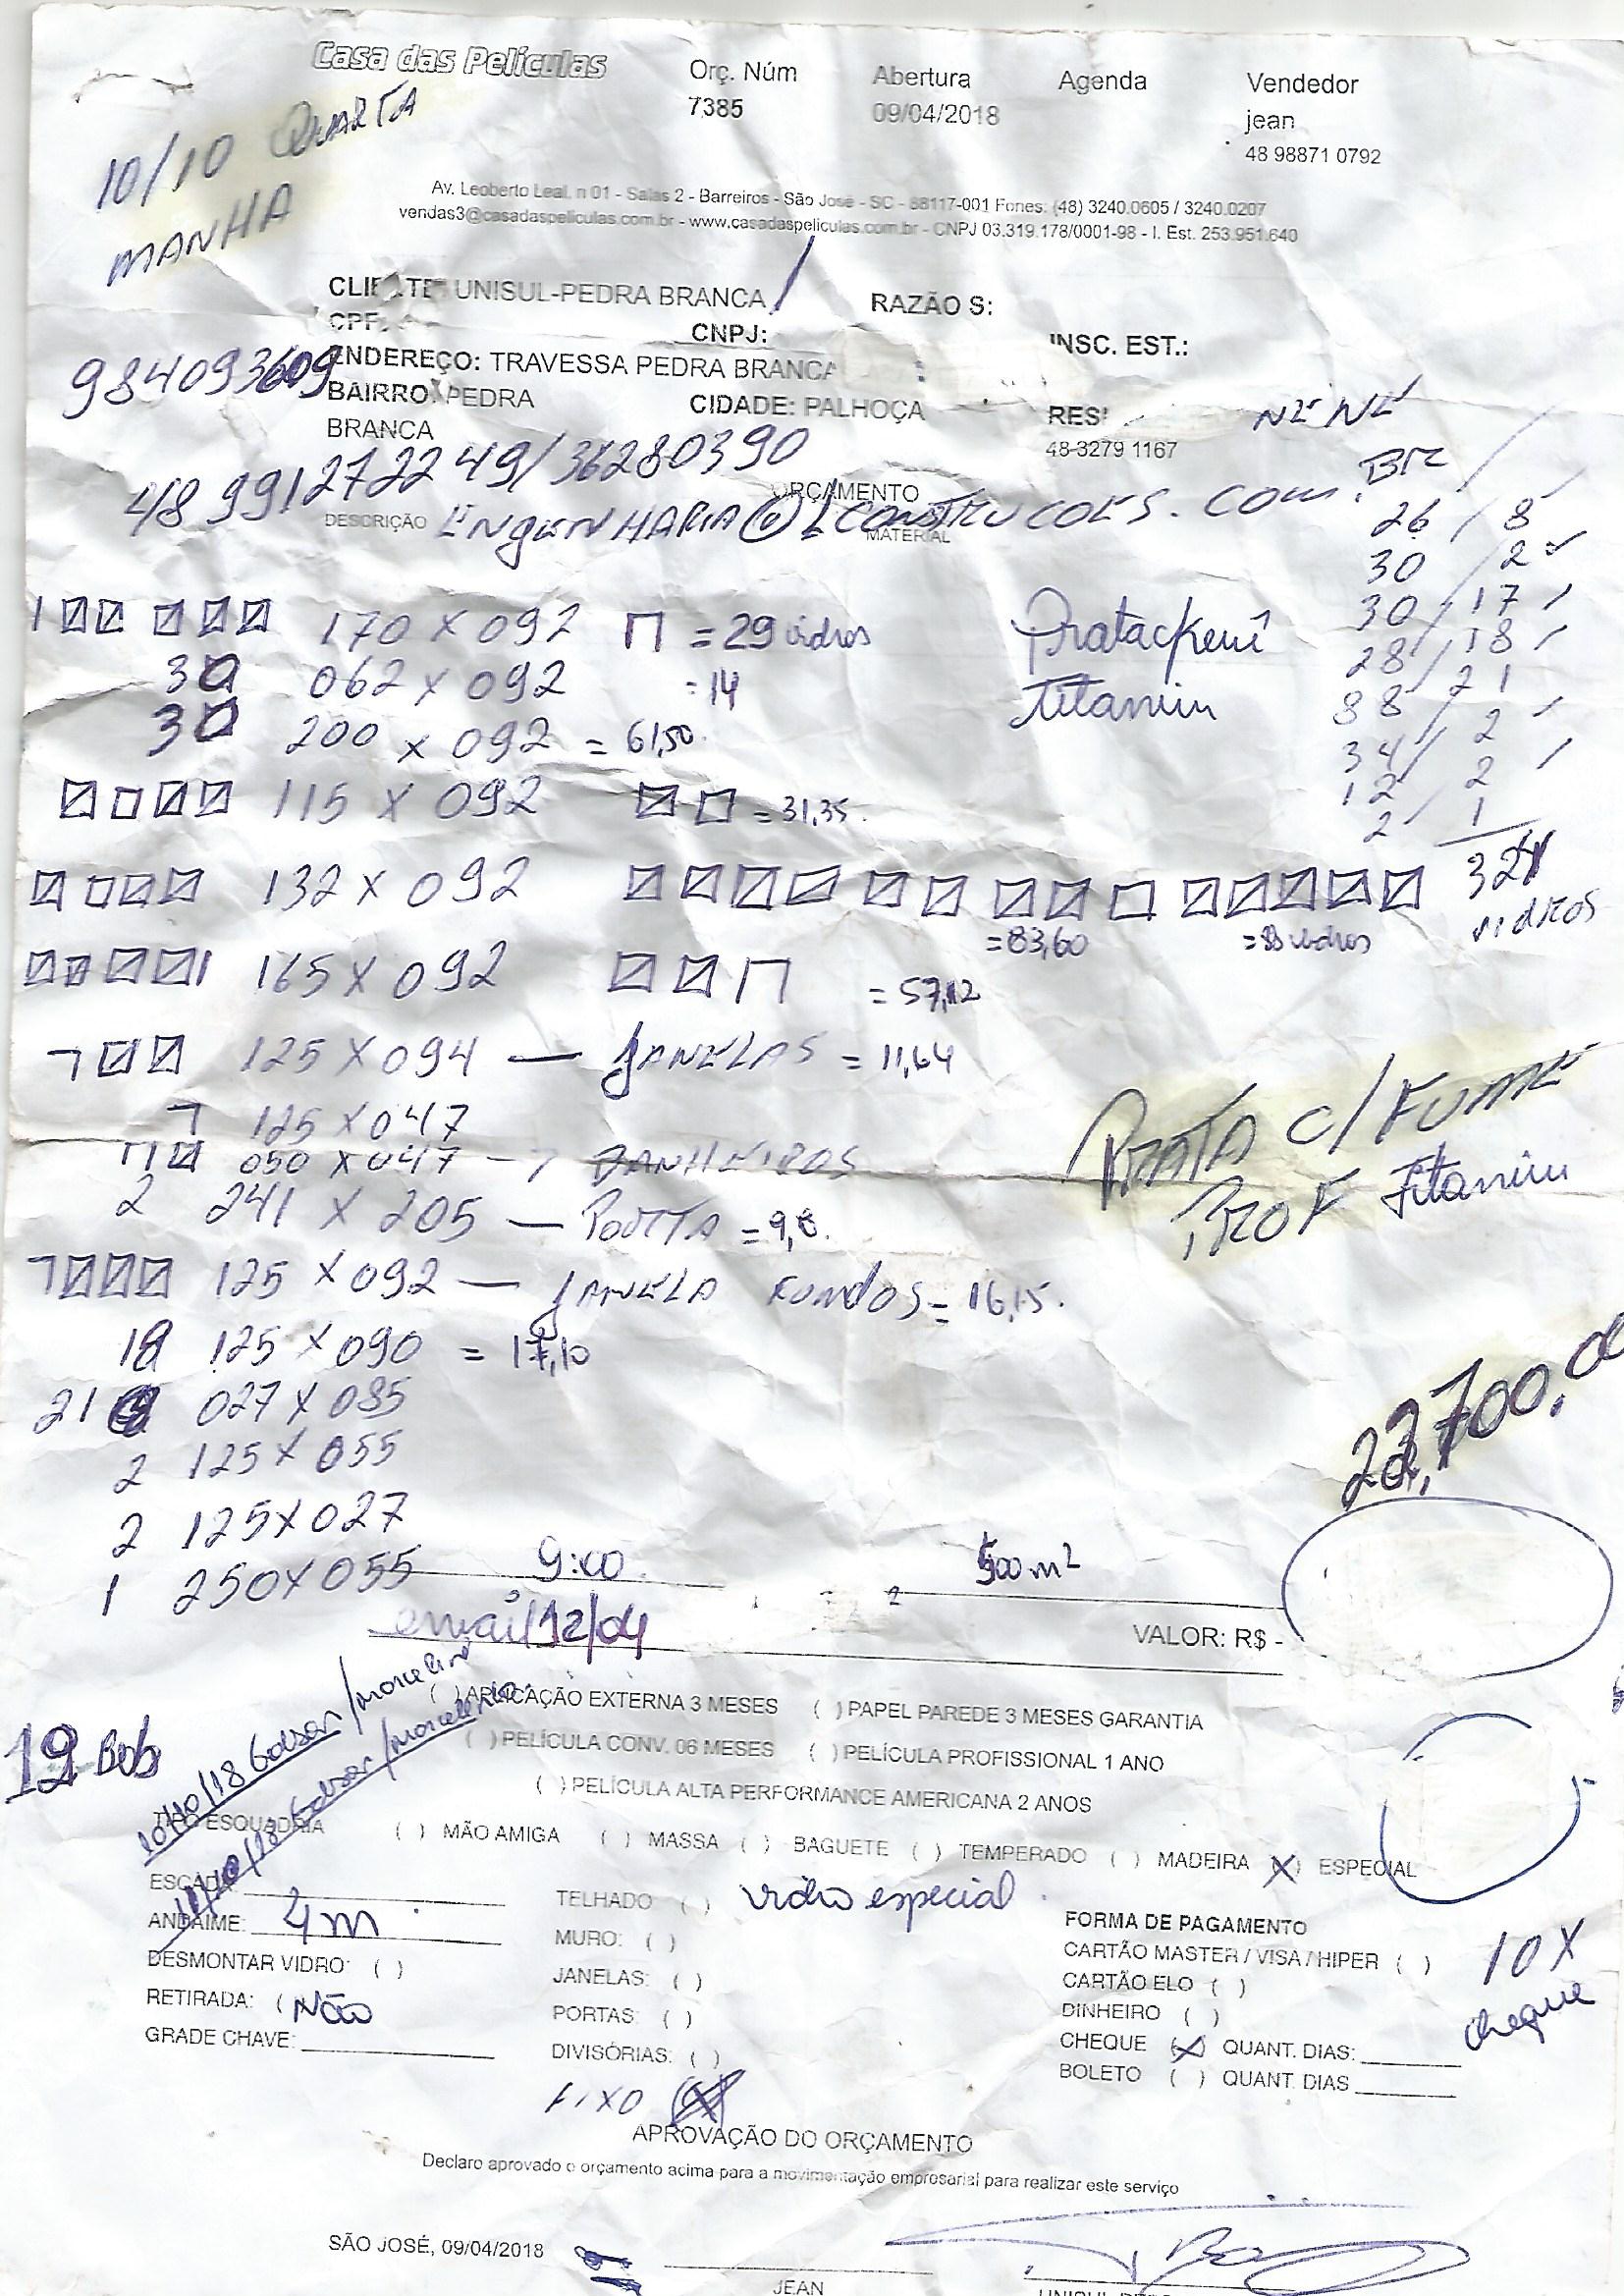 Casa das Películas
Orç. Núm Abertura Agenda Vendedor
7385 09/04/2018 jean
48 98871 0792
10/10 QUARTA
MANHA
Av. Leoberto Leal, n 01 - Salas 2 - Barreiros - São José - SC - 88117-001 Fones: (48) 3240.0605 / 3240.0207
vendas3@casadaspeliculas.com.br - www.casadaspeliculas.com.br - CNPJ 03.319.178/0001-98 - I. Est. 253.951.640
UNISUL-PEDRA BRANCA RAZÃO S:
CNPJ: INSC. EST.:
984093609
ENDEREÇO: TRAVESSA PEDRA BRANCA
BAIRRO: PEDRA CIDADE: PALHOÇA
BRANCA 48-3279 1167
48 991272249/36280390
ORÇAMENTO
DESCRIÇÃO MATERIAL
26 / 8
30 / 2
30 / 17
28 / 18
88 / 21
34 / 2
12 / 2
2 / 1
vidros
170 X 092 = 29 vidros
30 062 X 092 = 14 Titanium
30 200 X 092 = 61,50
115 X 092 = 31,35
132 X 092 = 83,60 = 88 vidros
165 X 092 = 57,12
125 X 094 — JANELAS = 11,64
125 X 047
050 X 047 - BANHEIROS
PRATA C/ FUME
PROF Titanium
2 241 X 205 — PORTA = 9,8
125 X 092 — JANELA FUNDOS = 16,15
18 125 X 090 = 17,10
21 027 X 085
2 125 X 055
2 125 X 027
1 250 X 055
22,700,00
9:00 500 m²
email 12/04
VALOR: R$ -
( ) APLICAÇÃO EXTERNA 3 MESES ( ) PAPEL PAREDE 3 MESES GARANTIA
( ) PELÍCULA CONV. 06 MESES ( ) PELÍCULA PROFISSIONAL 1 ANO
( ) PELÍCULA ALTA PERFORMANCE AMERICANA 2 ANOS
12 Bob
TIPO ESQUADRIA ( ) MÃO AMIGA ( ) MASSA ( ) BAGUETE ( ) TEMPERADO ( ) MADEIRA (X) ESPECIAL
TELHADO ( ) vidro especial
ANDAIME: 4m
MURO: ( )
DESMONTAR VIDRO: ( )
JANELAS: ( )
RETIRADA: ( NÃO
PORTAS: ( )
GRADE CHAVE:
DIVISÓRIAS: ( )
FIXO (X)
FORMA DE PAGAMENTO
CARTÃO MASTER / VISA / HIPER ( )
CARTÃO ELO ( )
DINHEIRO ( )
CHEQUE (X) QUANT. DIAS:
BOLETO ( ) QUANT. DIAS
10 X
cheque
APROVAÇÃO DO ORÇAMENTO
Declaro aprovado o orçamento acima para a movimentação empresarial para realizar este serviço
SÃO JOSÉ, 09/04/2018
JEAN